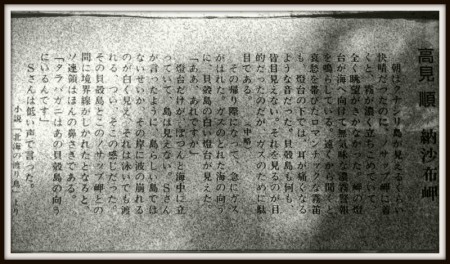 高見 順 納沙布岬
朝はクナシリ島が見えるくらい
快晴だったのに、ノサップ岬に着
くと、霧が濃く立ちこめていて、
全く眺望がきかなかった。岬の燈
台が海へ向けて無気味な濃霧警報
を鳴らしている。遠くから聞くと
哀愁を帯びたロマンチックな霧笛
も、燈台の下では、耳が痛くなる
ような音だった。貝殻島も何も、
皆目見えない。それを見るのが目
的だったのだが、ガスのために駄
目である。（中略）
その帰り際になって、急にガス
がはれた。ガスのとれた海の向う
に、貝殻島の白い燈台が見えた。
「ああ、あれですか」
燈台だけが、ぽつんと海中に立
っていて、島は見えない。Sさん
が言ったように、島らしい島では
ないせいか。その岸に波の崩れる
のが白く見える。それは泳いでも渡
れそうな、そこの感じだった。
その貝殻島とこのノサップ岬との
間に境界線がしかれたとなると、
ソ連領はほんの鼻さきである。
「タラバガニはあの貝殻島の向う
にいるんです」
Sさんは低い声で言った。
小説「北海の渡り鳥」より